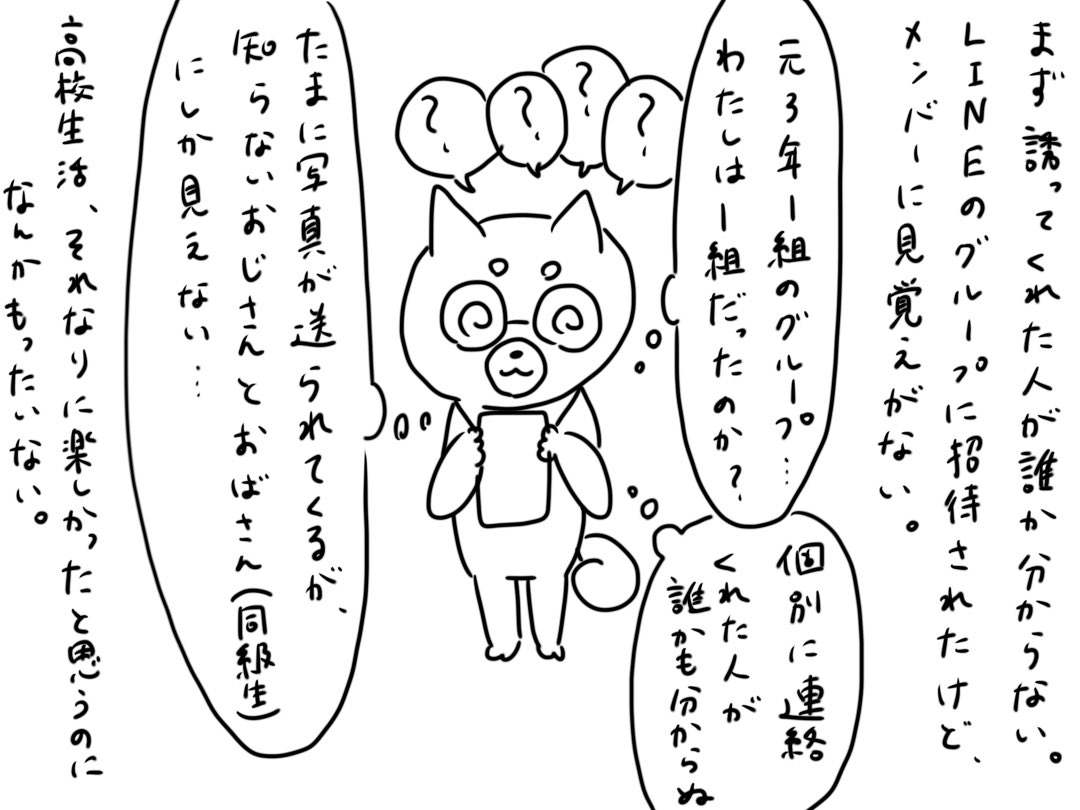 まず誘ってくれた人が誰か分からない。
LINEのグループに招待されたけど、
メンバーに見覚えがない。
元3年1組のグループ…
わたしは1組だったのか？
個別に連絡
くれた人が
誰かも分からぬ
？
？
？
？
たまに写真が送られてくるが、
知らないおじさんとおばさん(同級生)
にしか見えない…
高校生活、それなりに楽しかったと思うのに
なんかもったいない。